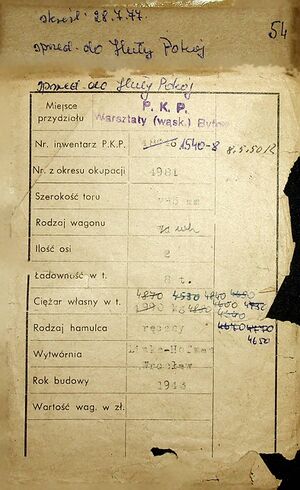 skreśl. 28.7.77.
54
sprzed. do Huty Pokój
sprzed. do Huty Pokój
Miejsce przydziału P. K. P. Warsztaty (wąsk.) Bytom
Nr. inwentarz P.K.P. 1540-8 8.5.50 R
Nr. z okresu okupacji 4981
Szerokość toru 785 mm
Rodzaj wagonu
Ilość osi 2
Ładowność w t. 8 t.
Ciężar własny w t. 4870 4530 4840
Rodzaj hamulca ręczny 4650
Wytwórnia Linke-Hofman Wrocław
Rok budowy
Wartość wag. w zł.